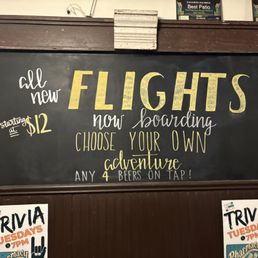 Best Patio
all new
FLIGHTS
starting at $12
now boarding
CHOOSE YOUR OWN
adventure
ANY 4 BEERS ON TAP!
TRIVIA
TUESDAYS
@ 7PM
TRIVIA
TUESDAYS
@ 7PM